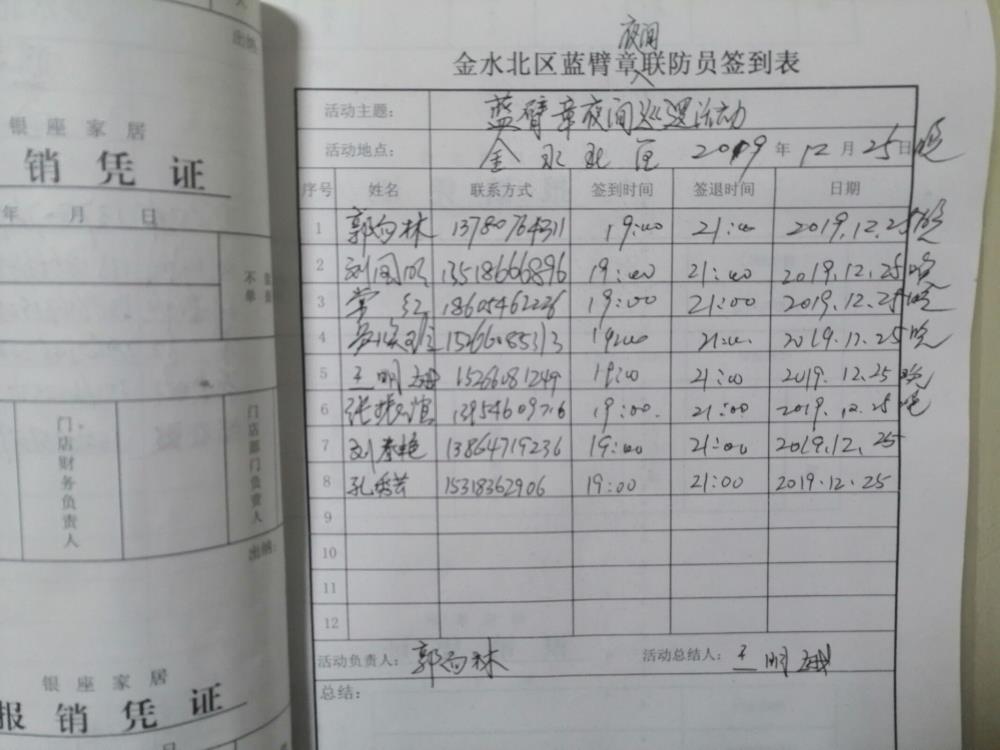 出纳:
银座家居
销凭证
年 月 日
不 金
单 金
门店财务负责人
门店部门负责人
出纳:
银座家居
报销凭证
夜间
金水北区蓝臂章联防员签到表
活动主题: 蓝臂章夜间巡逻活动
活动地点: 金水北区 2019年12月25日晚
序号 姓名 联系方式 签到时间 签退时间 日期
1 郭向林 13780764311 19:00 21:00 2019.12.25晚
2 刘国明 13518666896 19:00 21:00 2019.12.25晚
3 常红 18605462226 19:00 21:00 2019.12.25晚
4 15266085313 19:00 21:00 2019.12.25晚
5 王明 15266081249 19:00 21:00 2019.12.25晚
6 张振 13954609716 19:00 21:00 2019.12.25晚
7 刘春艳 13864719236 19:00 21:00 2019.12.25
8 孔秀芸 15318362906 19:00 21:00 2019.12.25
9
10
11
12
活动负责人: 郭向林 活动总结人: 王明
总结: